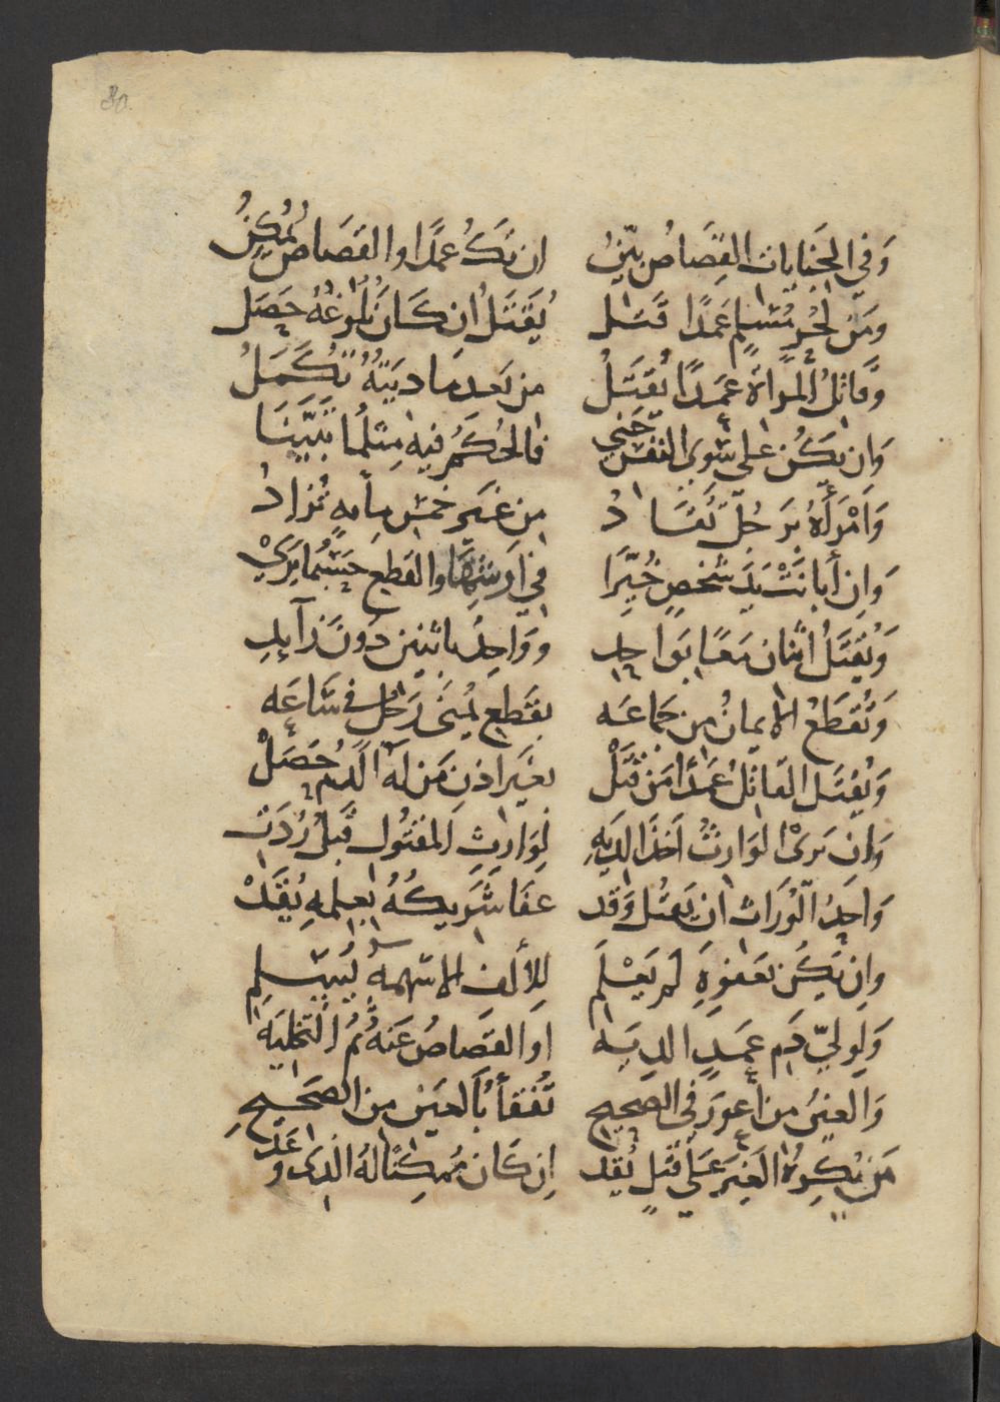 80
وَفي الجنَايَات القِصَاصُ بيّنُ ان تَكُ عمدًا والقصَاصُ مُمْكِنُ
ومَن لحُرٍ مُسْلمٍ عمدًا قتل يُقتَلُ ان كَان بُلوغهُ حصَل
وقاتلُ المراة عمدًا يُقتَلُ من بَعد ما ديَتهُ تُكمَلُ
وَان يكُن على سوى النفس جَنى فالحُكمُ فيه مثلما تبيّنا
وَامْرَأةُ برجُلٍ تُقَادُ من غير خمس مايةٍ تُزادُ
وَان أبانتْ يَدَ شخصٍ خُيّرَا في ارشهَا والقطع حَسْبُما يَرَى
وَيُقتَلُ اثنان معًا بوَاحِدِ ووَاحِدُ باثنين دُونَ زآيدِ
وَتُقطَعُ الايمانُ من جماعَه بقطع يُمنَى رَجُل في سَاعَه
وَيُقتَل القاتلُ عمدًا مَن قتَلْ بغيَر اذن مَن لهُ الدم حَصَلْ
وَان يرى الوَارثُ اخذَ الديَهِ لوَارثِ المقتُول قبلُ رُدّتِ
وَاحَدُ الوُرّاث ان يَقتُل وَقد عفَا شَريكهُ بعلمهِ يُقَدْ
وان يكُن بعَفوهِ لم يَعْلَمِ للألف الا سَهمهُ يُسَلّمِ
وَلوليّ دَم عمدٍ الديَه او القصَاصُ عَنهُ ثُمّ التخليَه
وَالعينُ من أعوَرَ في الصحيح تُفقأُ بالعين من الصَحيحِ
مَن يُكرهُ الغيرَ عَلى قتلٍ يُقد ان كَان مُمكنًا لهُ الذى وَعَد